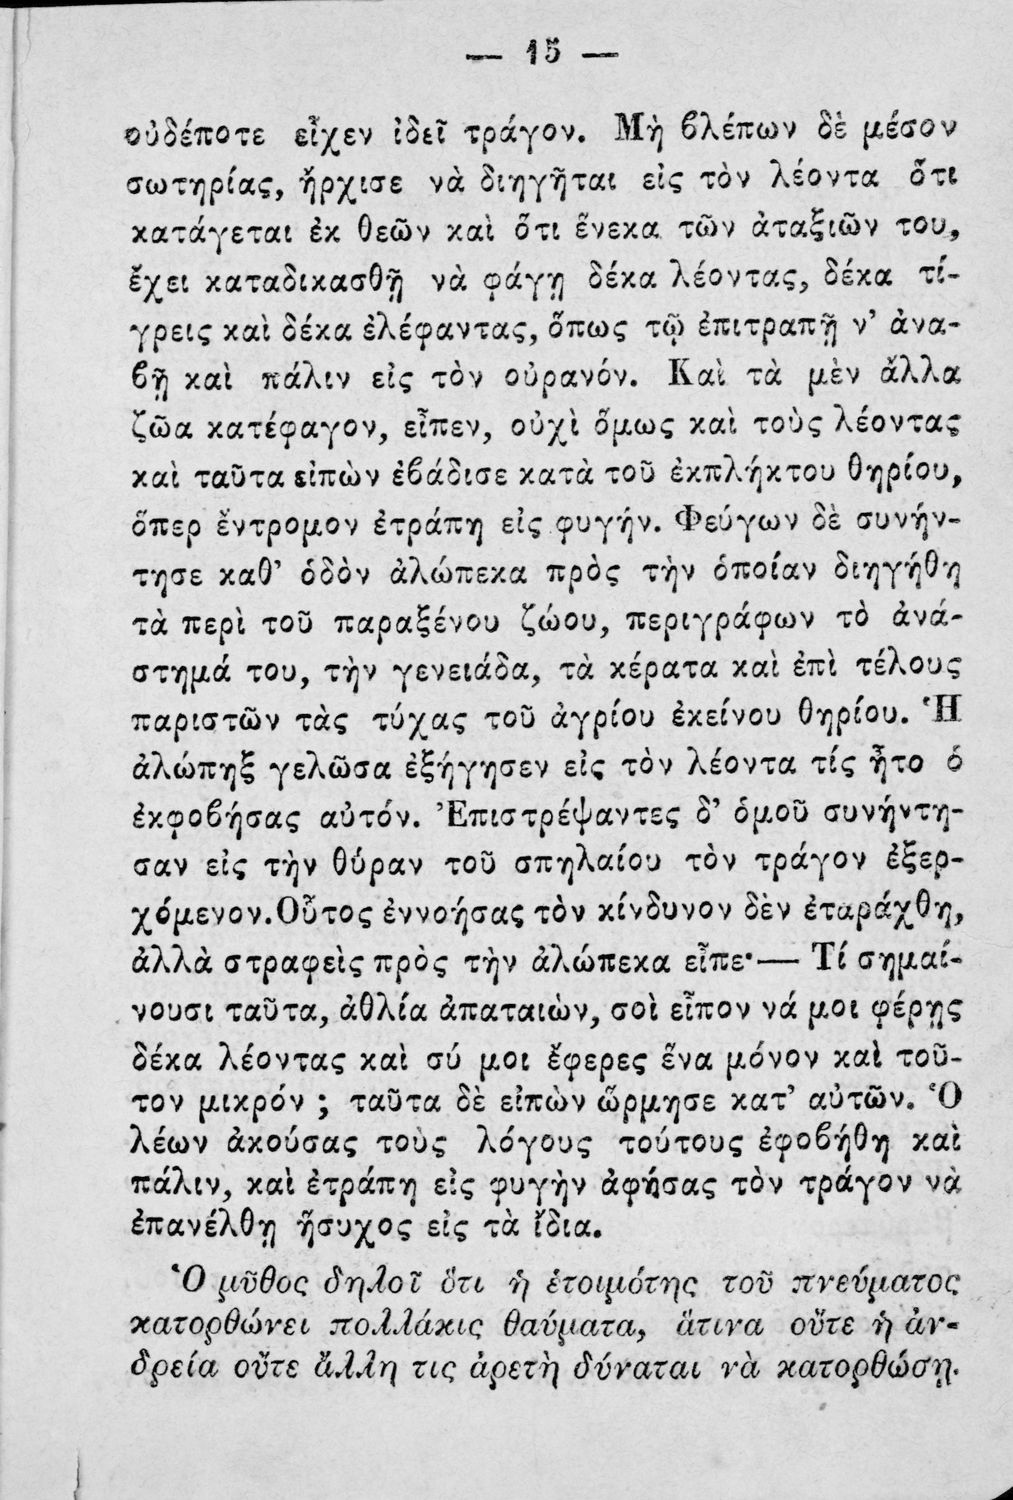 — 15 —
οὐδέποτε εἶχεν ἰδεῖ τράγον. Μὴ βλέπων δὲ μέσον
σωτηρίας, ἤρχισε νὰ διηγῆται εἰς τὸν λέοντα ὅτι
κατάγεται ἐκ θεῶν καὶ ὅτι ἕνεκα τῶν ἀταξιῶν του,
ἔχει καταδικασθῇ νὰ φάγῃ δέκα λέοντας, δέκα τί-
γρεις καὶ δέκα ἐλέφαντας, ὅπως τῷ ἐπιτραπῇ ν' ἀνα-
βῇ καὶ πάλιν εἰς τὸν οὐρανόν. Καὶ τὰ μὲν ἄλλα
ζῶα κατέφαγον, εἶπεν, οὐχὶ ὅμως καὶ τοὺς λέοντας
καὶ ταῦτα εἰπὼν ἐβάδισε κατὰ τοῦ ἐκπλήκτου θηρίου,
ὅπερ ἔντρομον ἐτράπη εἰς φυγήν. Φεύγων δὲ συνήν-
τησε καθ' ὁδὸν ἀλώπεκα πρὸς τὴν ὁποίαν διηγήθη
τὰ περὶ τοῦ παραξένου ζώου, περιγράφων τὸ ἀνά-
στημά του, τὴν γενειάδα, τὰ κέρατα καὶ ἐπὶ τέλους
παριστῶν τὰς τύχας τοῦ ἀγρίου ἐκείνου θηρίου. Ἡ
ἀλώπηξ γελῶσα ἐξήγησεν εἰς τὸν λέοντα τίς ἦτο ὁ
ἐκφοβήσας αὐτόν. Ἐπιστρέψαντες δ' ὁμοῦ συνήντη-
σαν εἰς τὴν θύραν τοῦ σπηλαίου τὸν τράγον ἐξερ-
χόμενον.Οὗτος ἐννοήσας τὸν κίνδυνον δὲν ἐταράχθη,
ἀλλὰ στραφεὶς πρὸς τὴν ἀλώπεκα εἶπε·— Τί σημαί-
νουσι ταῦτα, ἀθλία ἀπαταιὼν, σοὶ εἶπον νά μοι φέρῃς
δέκα λέοντας καὶ σύ μοι ἔφερες ἕνα μόνον καὶ τοῦ-
τον μικρόν ; ταῦτα δὲ εἰπὼν ὥρμησε κατ' αὐτῶν. Ὁ
λέων ἀκούσας τοὺς λόγους τούτους ἐφοβήθη καὶ
πάλιν, καὶ ἐτράπη εἰς φυγὴν ἀφήσας τὸν τράγον νὰ
ἐπανέλθῃ ἥσυχος εἰς τὰ ἴδια.
Ὁ μῦθος δηλοῖ ὅτι ἡ ἑτοιμότης τοῦ πνεύματος
κατορθώνει πολλάκις θαύματα, ἅτινα οὔτε ἡ ἀν-
δρεία οὔτε ἄλλη τις ἀρετὴ δύναται νὰ κατορθώσῃ.